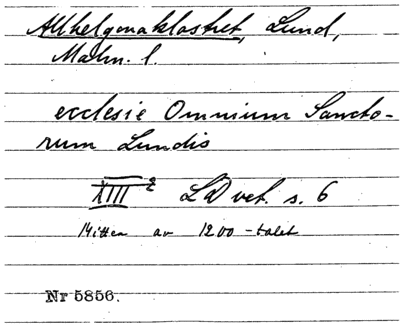 Allhelgonaklostret, Lund,
Malm. l.
ecclesie Omnium Sancto-
rum Lundis
XIII² LD vet. s. 6
Mitten av 1200-talet
Nr 5856.